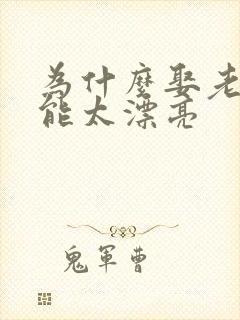 为什麼娶老
能太漂亮
鬼軍曹